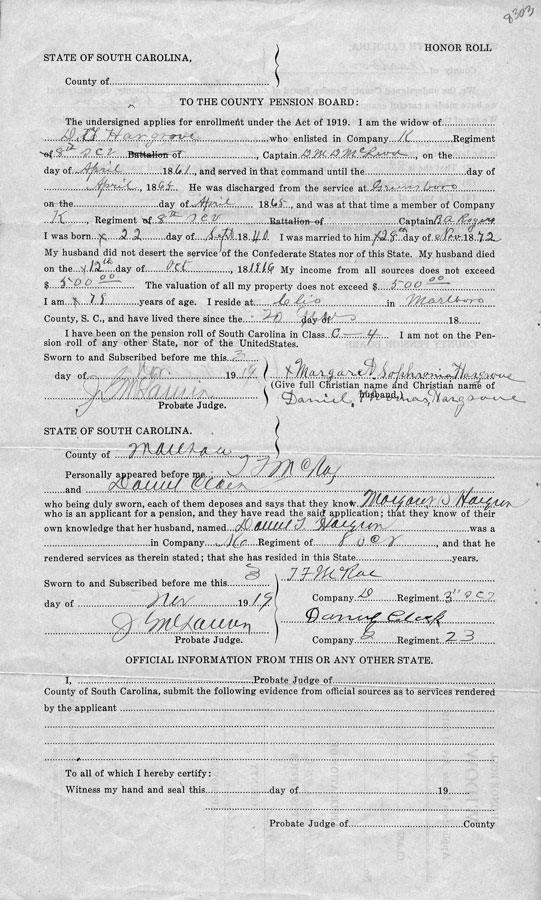 8303
HONOR ROLL
STATE OF SOUTH CAROLINA,
County of
TO THE COUNTY PENSION BOARD:
The undersigned applies for enrollment under the Act of 1919. I am the widow of
D. T. Hargrove who enlisted in Company K Regiment
of 8th SCV Battalion of , Captain D M D McLeod, on the
day of April 1861, and served in that command until the day of
April, 1865. He was discharged from the service at Greensboro
on the day of April 1865, and was at that time a member of Company
K, Regiment of 8th SCV Battalion of Captain B A Rogers
I was born x 22 day of Sept 1840 I was married to him x 28th day of Nov 1872
My husband did not desert the service of the Confederate States nor of this State. My husband died
on the x 12th day of Oct, 1916 My income from all sources does not exceed
$ 500 00 The valuation of all my property does not exceed $ 500 00
I am x 78 years of age. I reside at Clio in Marlboro
County, S. C., and have lived there since the 20 day of 18
I have been on the pension roll of South Carolina in Class C-4 I am not on the Pen-
sion roll of any other State, nor of the UnitedStates.
Sworn to and Subscribed before me this 3
day of Nov. 1919
x Margaret Sophronia Hargrove
(Give full Christian name and Christian name of
husband.)
Daniel Thomas Hargrove
J McLaurin
Probate Judge.
STATE OF SOUTH CAROLINA.
County of Marlboro
Personally appeared before me T F McRae
and Daniel
who being duly sworn, each of them deposes and says that they know Margaret S Hargrove
who is an applicant for a pension, and they have read the said application; that they know of their
own knowledge that her husband, named Daniel T Hargrove was a
in Company Regiment of 8 SCV, and that he
rendered services as therein stated; that she has resided in this State years.
Sworn to and Subscribed before me this 3
day of Nov 1919
T F McRae
Company D Regiment 3"
J McLaurin
Daniel
Probate Judge.
Company Regiment 23
OFFICIAL INFORMATION FROM THIS OR ANY OTHER STATE.
I, Probate Judge of
County of South Carolina, submit the following evidence from official sources as to services rendered
by the applicant
To all of which I hereby certify:
Witness my hand and seal this day of 19
Probate Judge of County